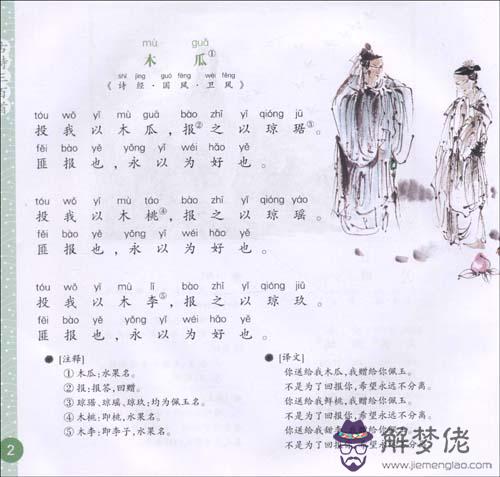 mù guā
木 瓜①
shī jīng guó fēng wèi fēng
《诗经·国风·卫风》
tóu wǒ yǐ mù guā bào zhī yǐ qióng jū
投我以木瓜,报②之以琼琚③。
fěi bào yě yǒng yǐ wéi hǎo yě
匪报也,永以为好也。
tóu wǒ yǐ mù táo bào zhī yǐ qióng yáo
投我以木桃④,报之以琼瑶。
fěi bào yě yǒng yǐ wéi hǎo yě
匪报也,永以为好也。
tóu wǒ yǐ mù lǐ bào zhī yǐ qióng jiǔ
投我以木李⑤,报之以琼玖。
fěi bào yě yǒng yǐ wéi hǎo yě
匪报也,永以为好也。
[注释]
①木瓜:水果名。
②报:报答,回赠。
③琼琚、琼瑶、琼玖:均为佩玉名。
④木桃:即桃,水果名。
⑤木李:即李子,水果名。
[译文]
你送给我木瓜,我赠给你佩玉。
不是为了回报你,希望永远不分离。
你送给我鲜桃,我赠给你佩玉。
不是为了回报你,希望永远不分离。
你送给我甜李
不是为了回报
2
解梦佬
www.jiemenglao.com